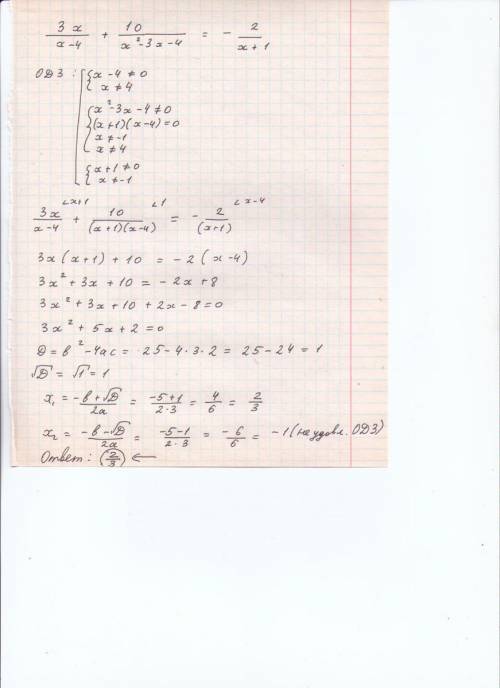 3x/(x-4) + 10/(x²-3x-4) = - 2/(x+1)
ОДЗ: x-4≠0
x≠4
x²-3x-4≠0
(x+1)(x-4)=0
x≠-1
x≠4
x+1≠0
x≠-1
3x/(x-4) ∠x+1 + 10/((x+1)(x-4)) ∠1 = - 2/(x+1) ∠x-4
3x(x+1)+10 = -2(x-4)
3x²+3x+10 = -2x+8
3x²+3x+10+2x-8=0
3x²+5x+2=0
D=b²-4ac= 25-4·3·2= 25-24=1
√D = √1 = 1
x₁ = (-b+√D)/2a = (-5+1)/(2·3) = 4/6 = 2/3
x₂ = (-b-√D)/2a = (-5-1)/(2·3) = -6/6 = -1 (не удовл. ОДЗ)
Ответ: (2/3) ←